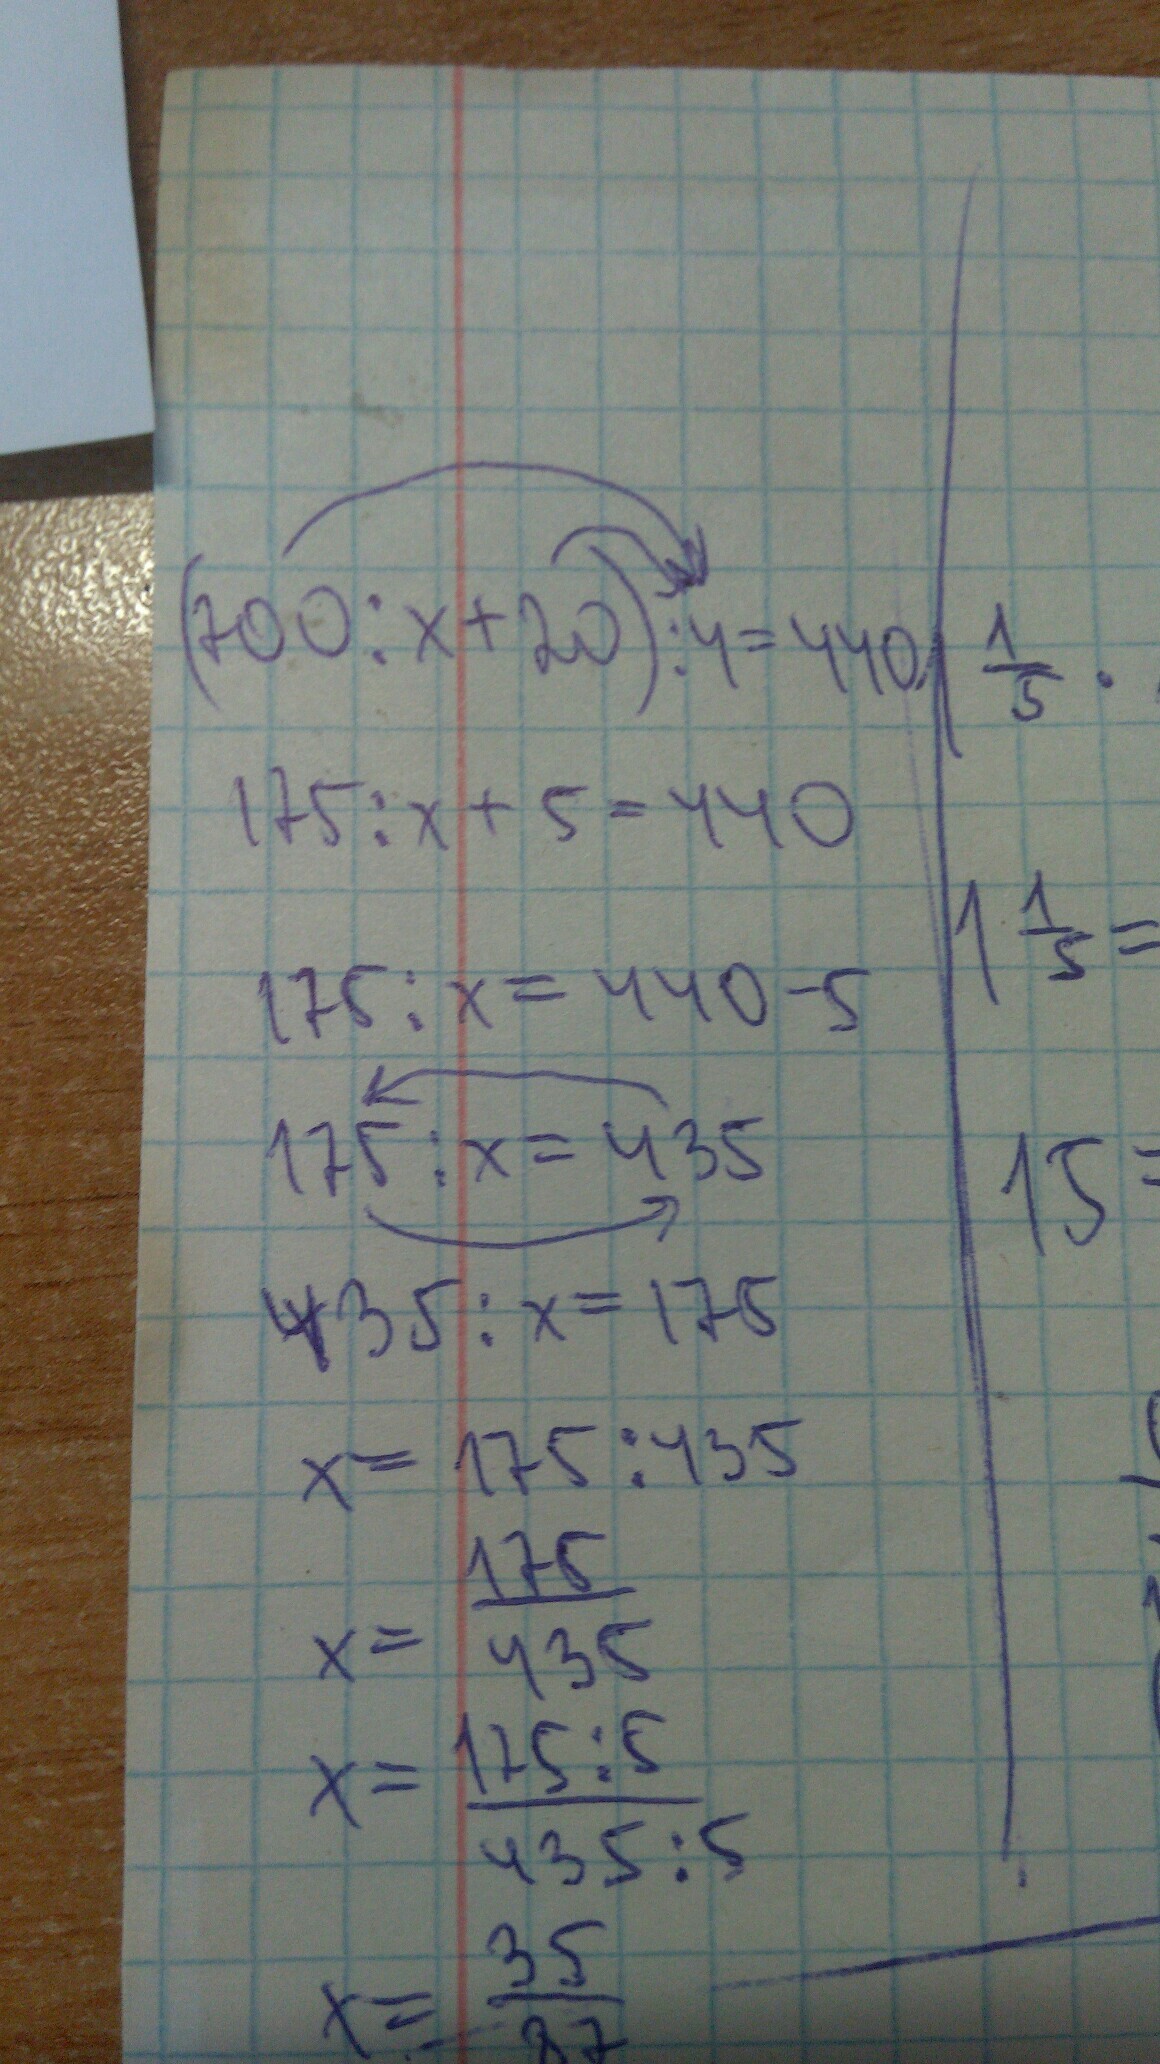 (700:x+20):4=440
175:x+5=440
175:x=440-5
175:x=435
435:x=175
x=175:435
x=175/435
x=175:5/435:5
x=35/87
1/5 ·
1 1/5 =
15=